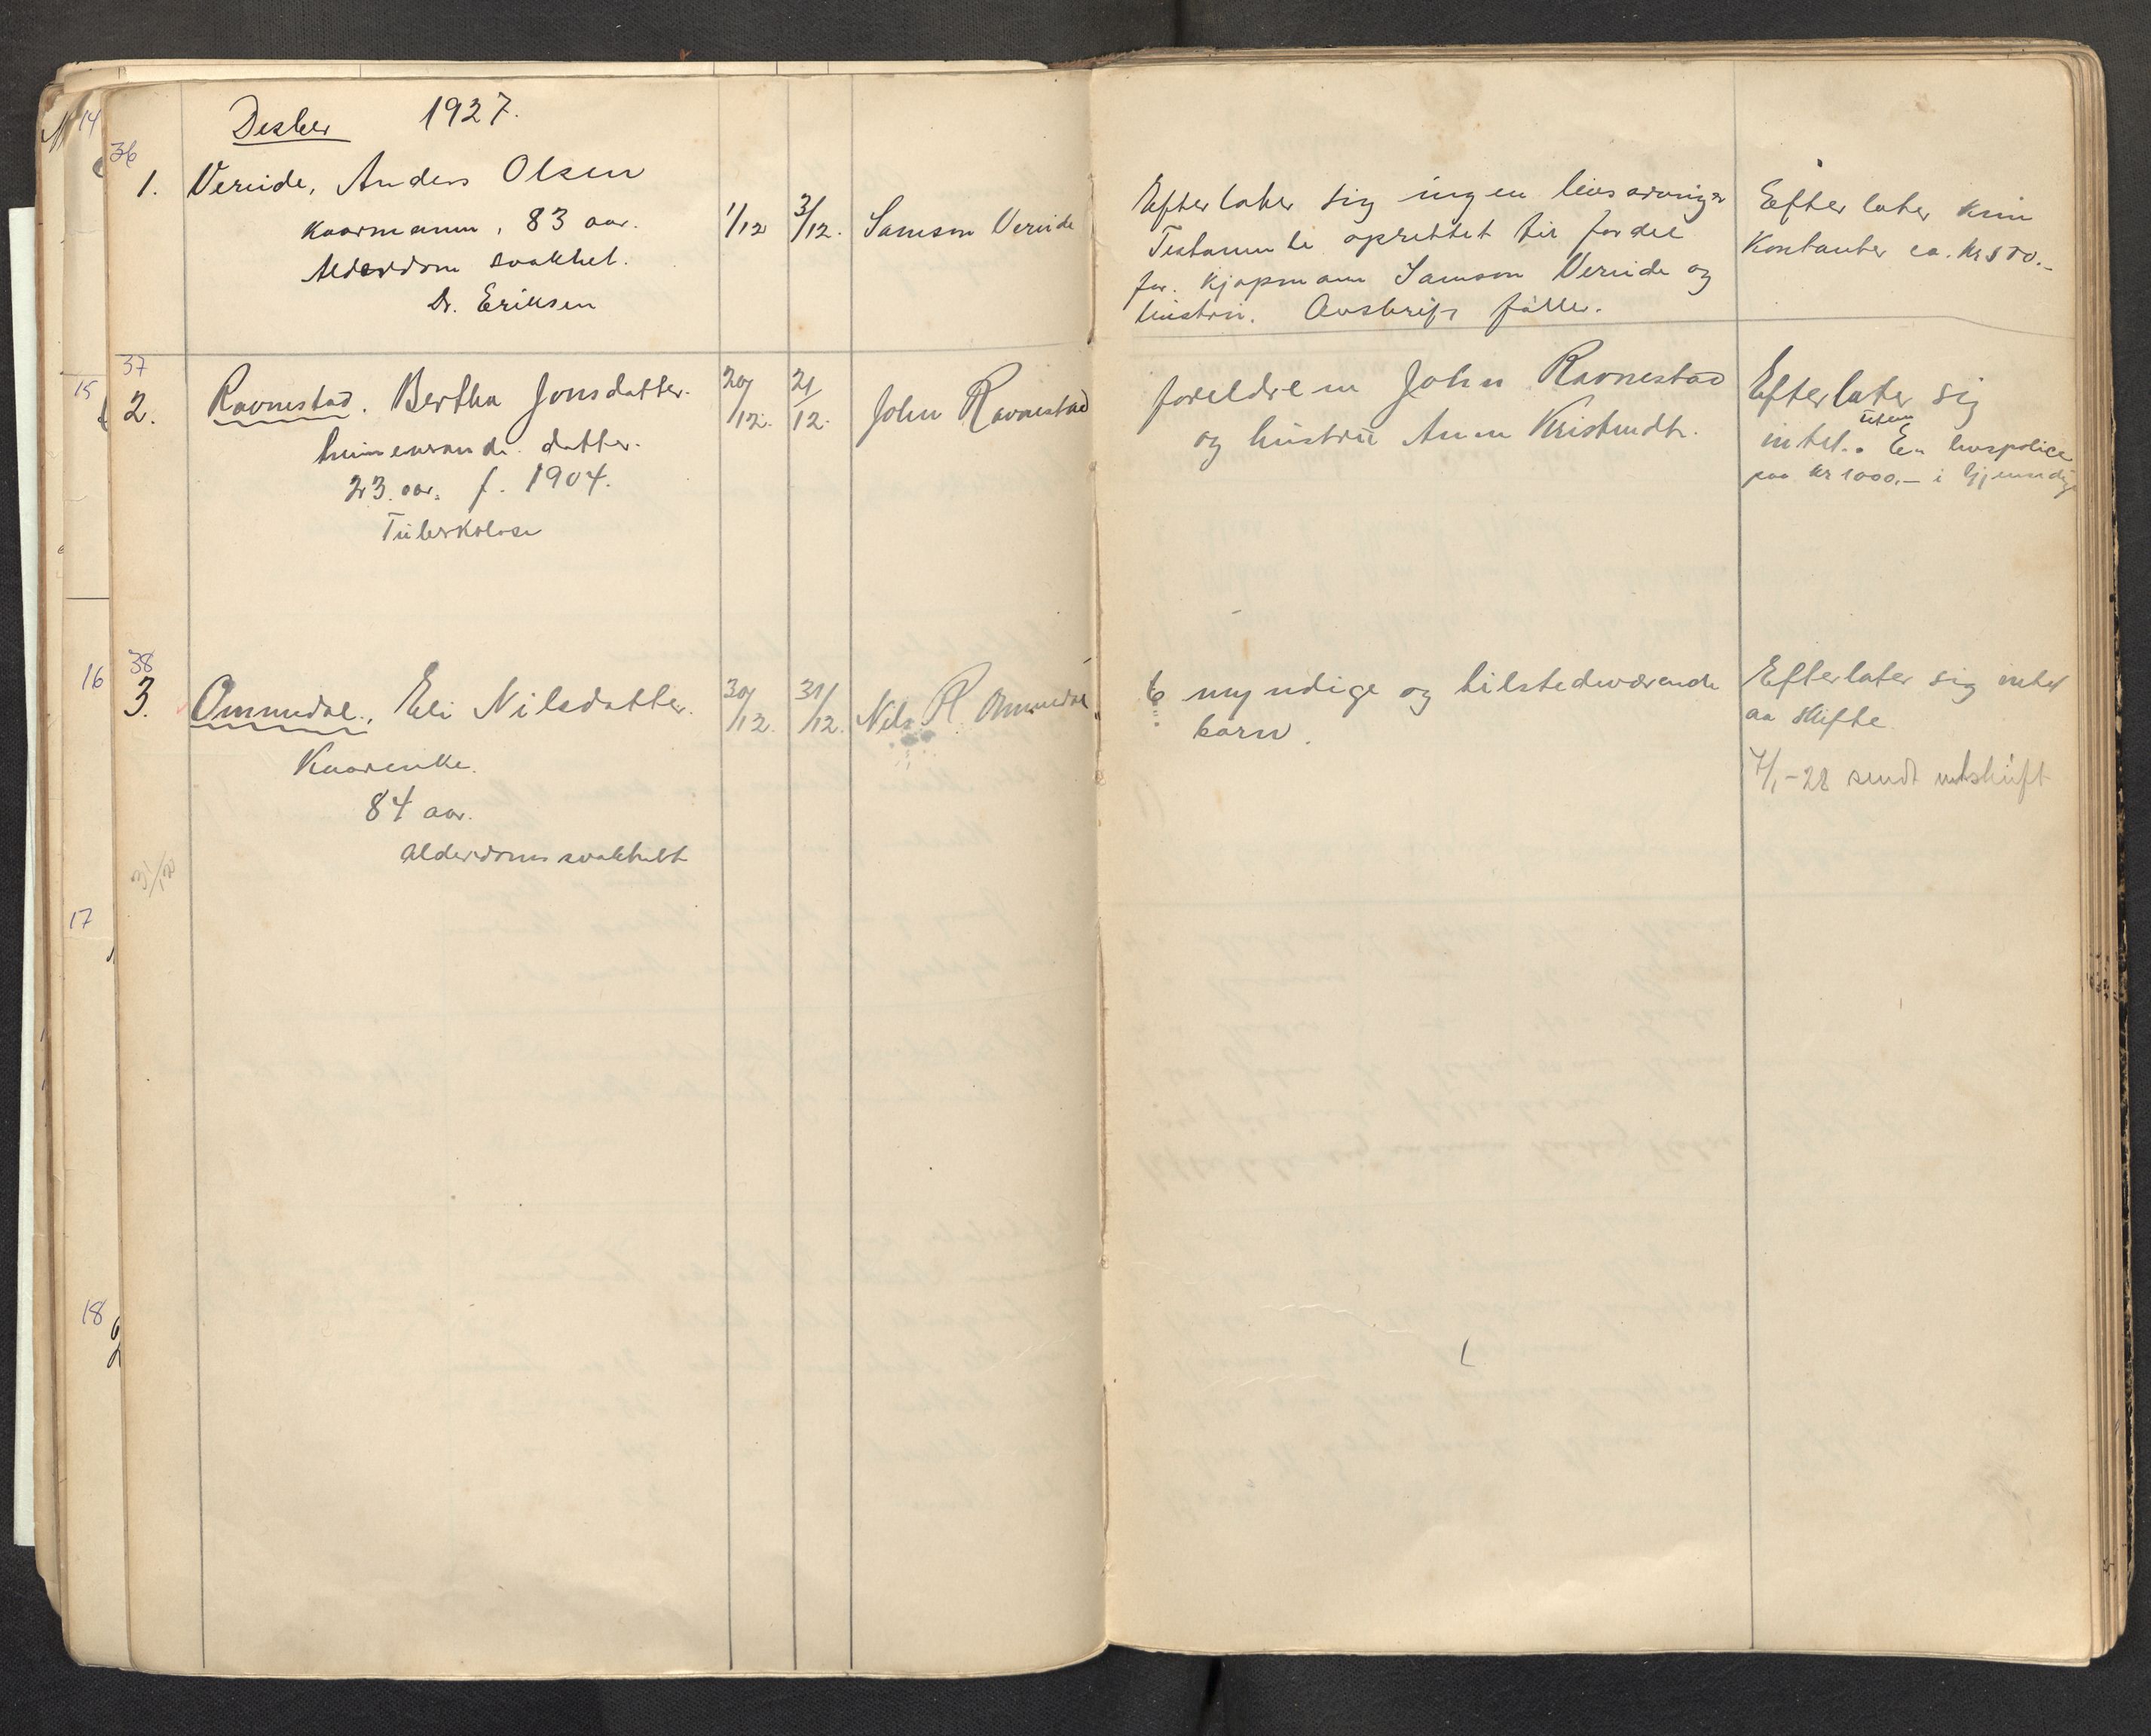 Desber 1927.
36
1. Vereide, Anders Olsen
Kaarmann, 83 aar.
Alderdom svakhet.
Dr. Eriksen
1/12 3/12. Samson Vereide
Efterlater sig ingen livsarvinger
Testamente oprettet til fordel
for kjøpmann Samson Vereide og
hustru. Avskrift følger.
Efterlater kun
Kontanter ca. kr 500.-
37
2. Ravnestad. Bertha Jonsdatter.
heimeværande datter.
23 aar. f. 1904.
Tuberkolose
20/12. 21/12. John Ravnestad
foreldrene John Ravnestad
og hustru Anna Kristendtr.
Efterlater sig
uten
intet. En livspolice
paa kr 1000.- i Gjensidige
38
3. Ommedal, Eli Nilsdatter.
Kaarenke.
84 aar.
Alderdoms svakhet
30/12. 31/12. Nils R. Ommedal
6 myndige og tilstedeværende
barn.
Efterlater sig intet
aa skifte
7/1-28 sendt utskrift
31/12
14
15
16
17
18